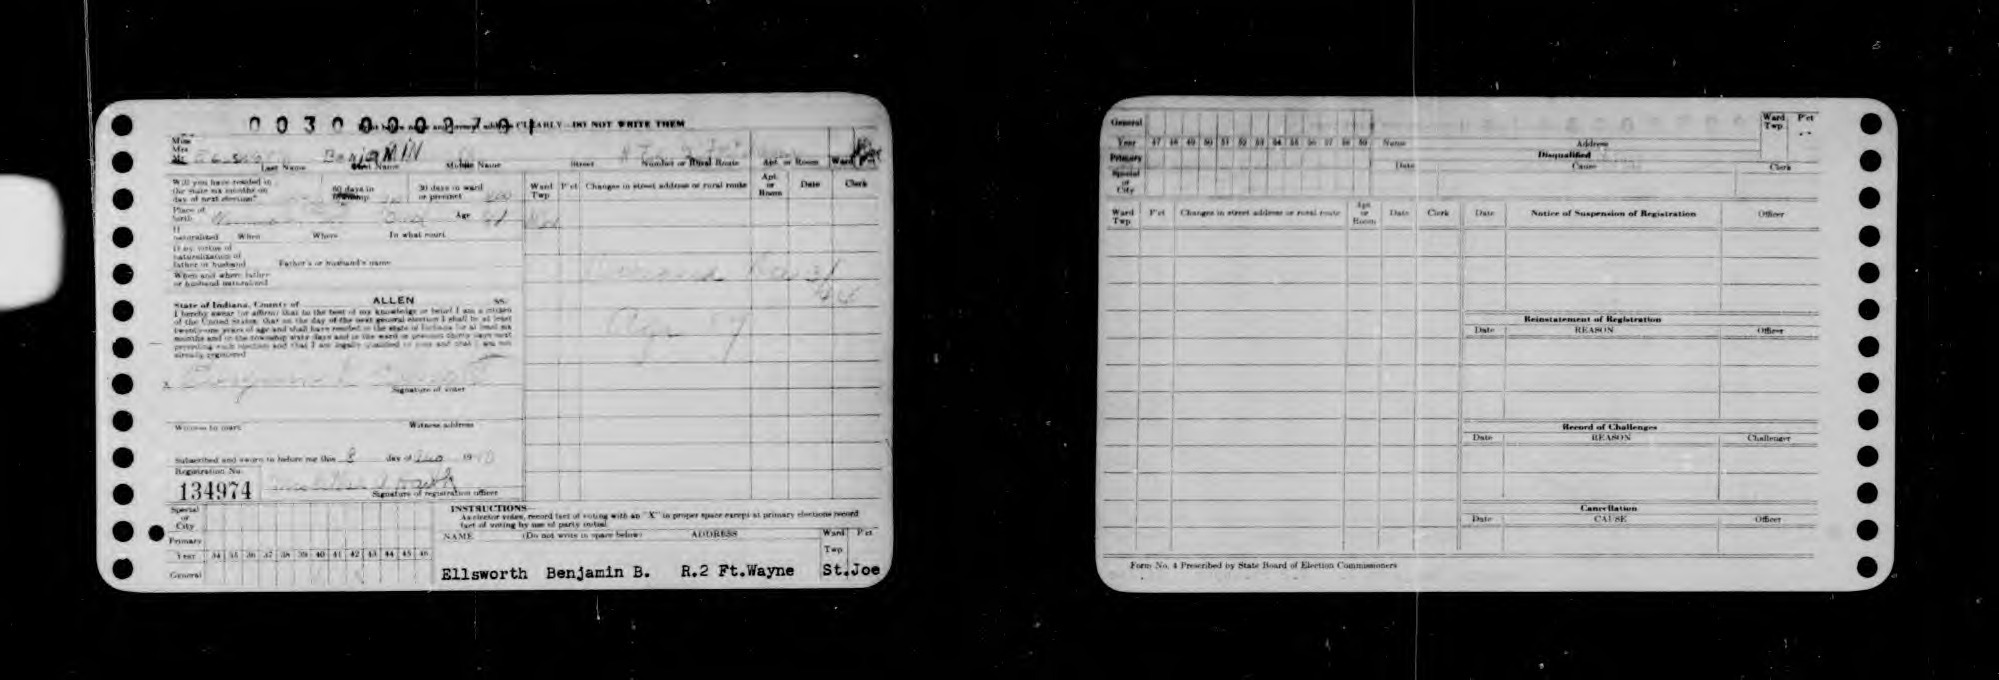 00300000
CLEARLY—DO NOT WRITE THEM
Miss
Mrs
Mr
Benjamin
Last Name First Name Middle Name Street Number or Rural Route Apt. or Room Ward Pct
Will you have resided in
the state six months on
day of next election?
60 days in
30 days in ward
or precinct
Place of
birth
Age
If
naturalized When Where In what court
If by virtue of
naturalization of
father or husband Father's or husband's name
When and where father
or husband naturalized
State of Indiana, County of ALLEN SS.
I hereby swear (or affirm) that to the best of my knowledge or belief I am a citizen
of the United States, that on the day of the next general election I shall be at least
twenty-one years of age and shall have resided in the state of Indiana for at least six
months and in the township sixty days and in the ward or precinct thirty days next
preceding such election and that I am legally qualified to vote and that I am not
already registered
X
Signature of voter
Witness to mark Witness address
Subscribed and sworn to before me this 8 day of 19
Registration No.
134974
Signature of registration officer
Ward
Twp P'ct Changes in street address or rural route Apt.
or
Room Date Clerk
Age
Special
or
City
Primary
Year 34 35 36 37 38 39 40 41 42 43 44 45 46
General
INSTRUCTIONS—
As elector votes, record fact of voting with an "X" in proper space except at primary elections record
fact of voting by use of party initial
NAME (Do not write in space below) ADDRESS Ward P'ct
Twp
Ellsworth Benjamin B. R.2 Ft.Wayne St.Joe
General
Year 47 48 49 50 51 52 53 54 55 56 57 58 59
Primary
Special
or
City
Name Address
Ward
Twp P'ct
Disqualified
Date Cause Clerk
Ward
Twp P'ct Changes in street address or rural route Apt.
or
Room Date Clerk
Date Notice of Suspension of Registration Officer
Reinstatement of Registration
Date REASON Officer
Record of Challenges
Date REASON Challenger
Cancellation
Date CAUSE Officer
Form No. 4 Prescribed by State Board of Election Commissioners